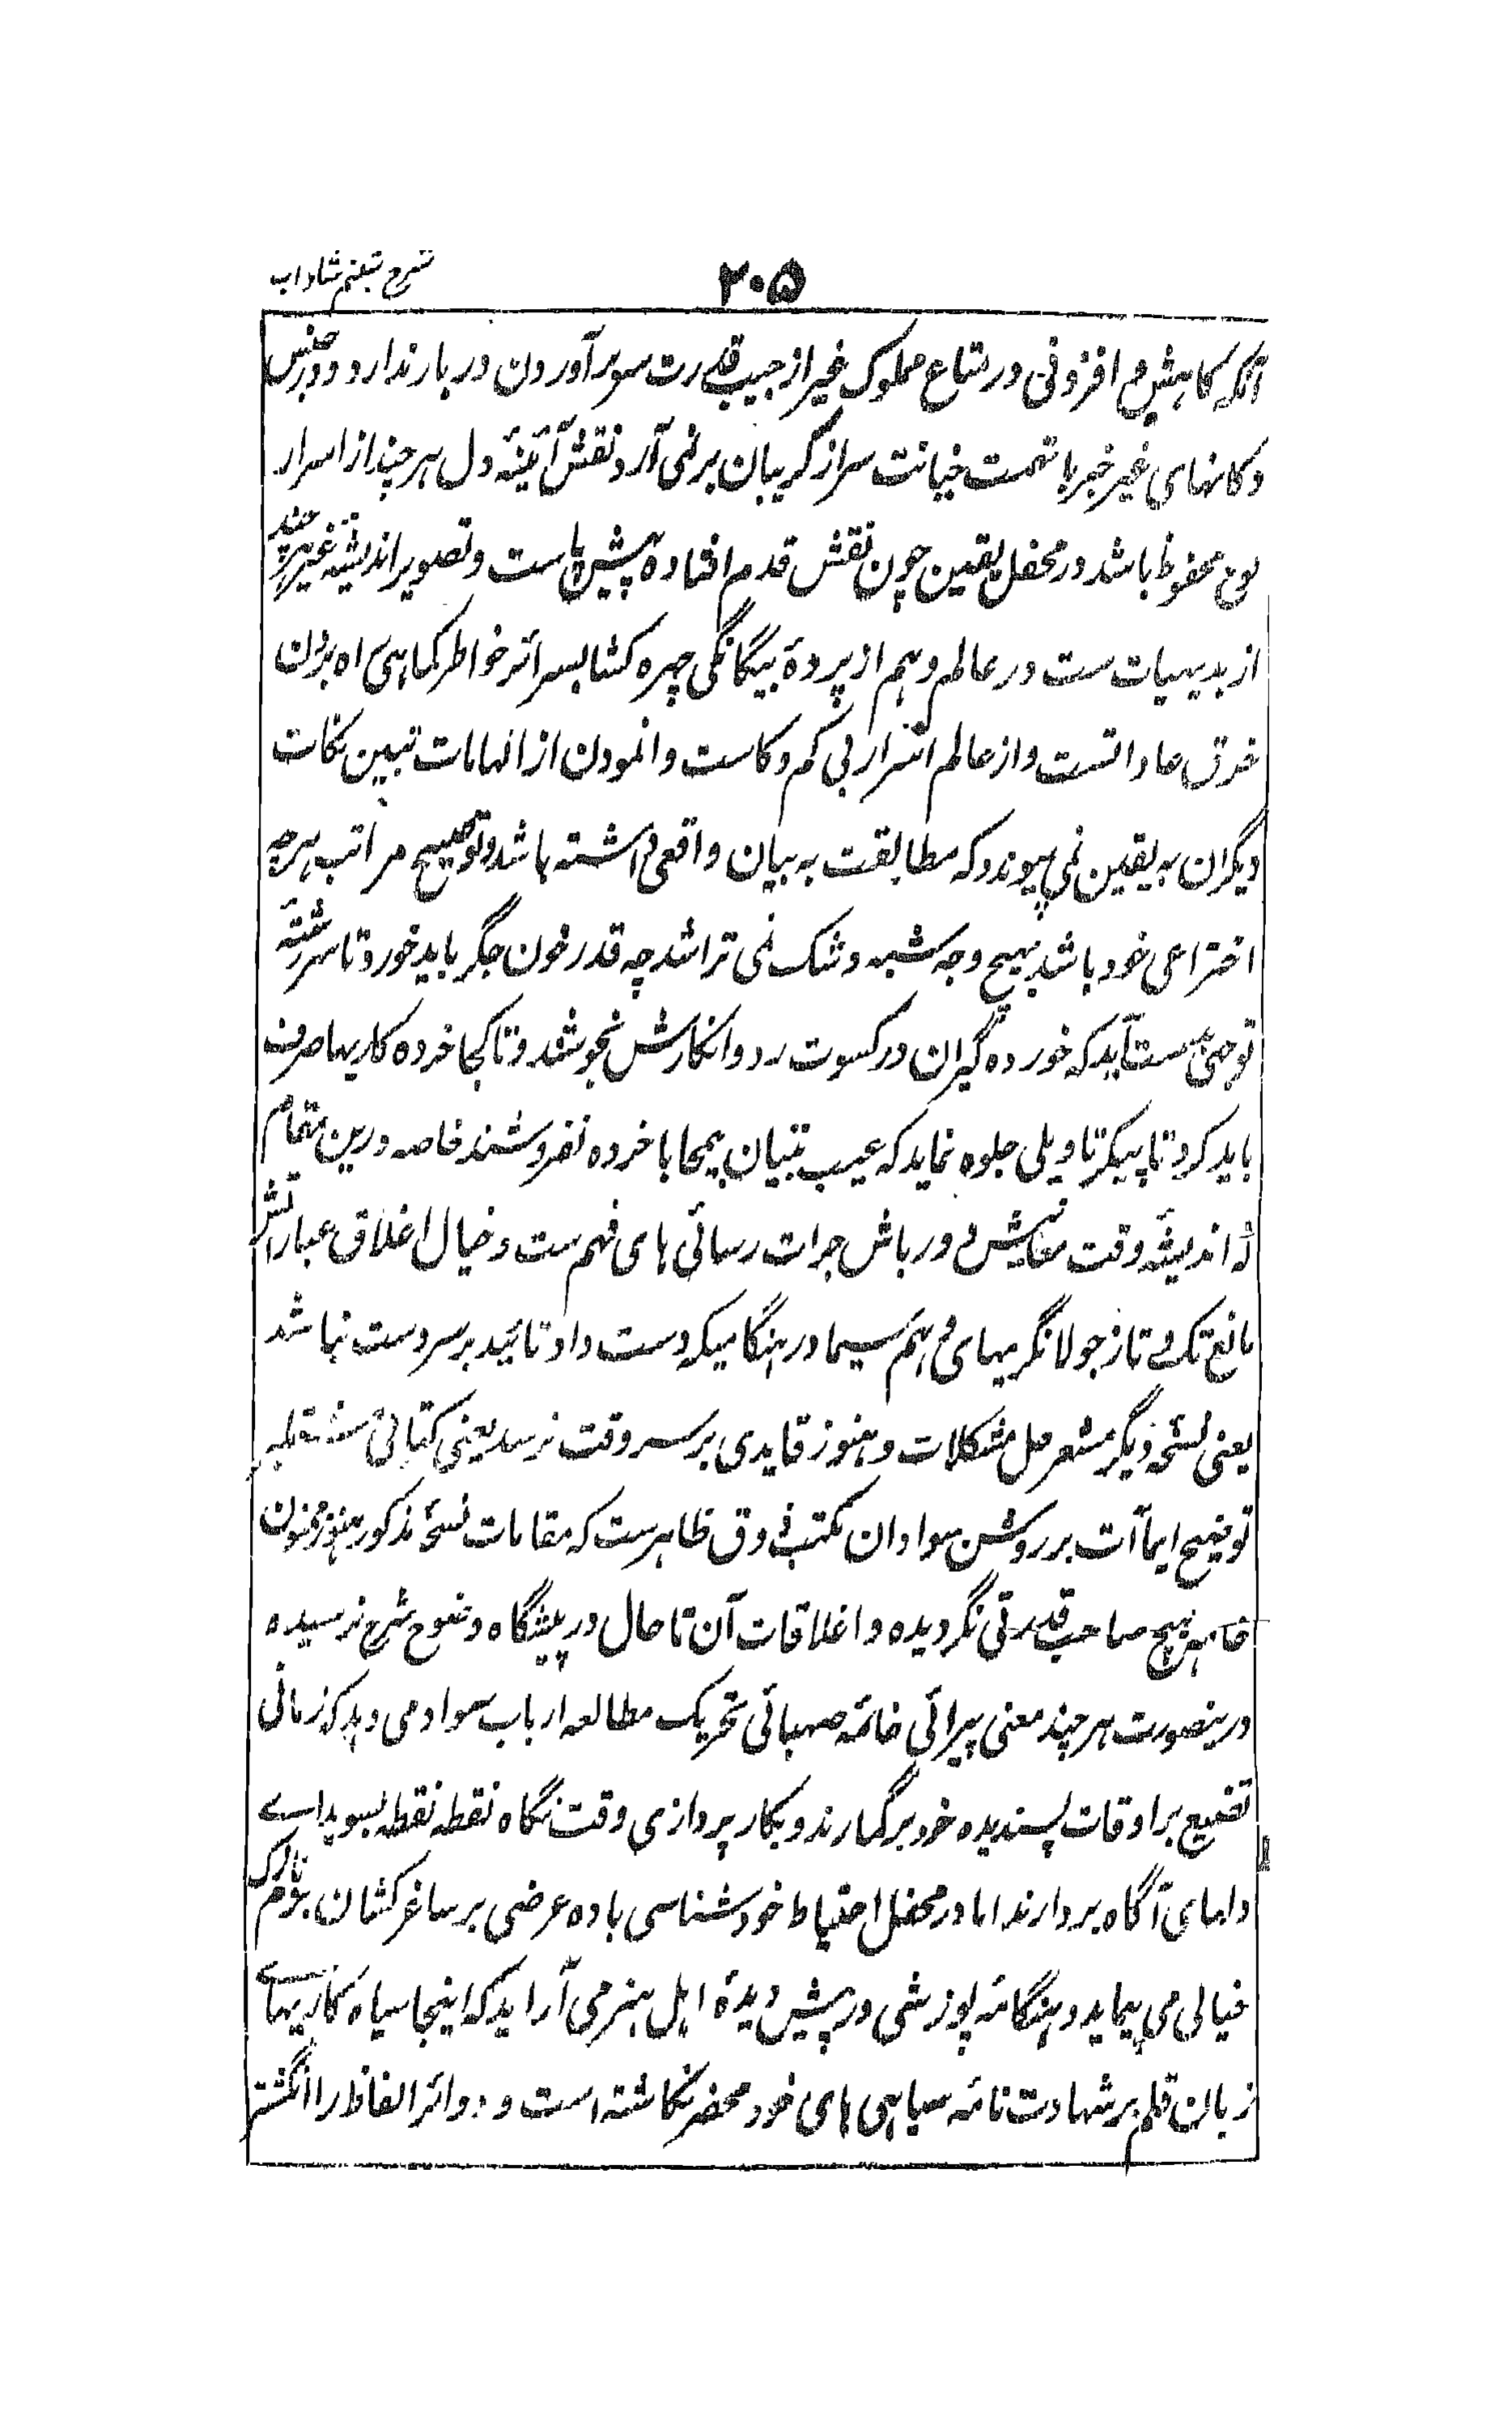 شرح شبنم شاداب
۲۰۵
آنکه کاهش و افزونی در متاع مملوک غیر از جیب قدرت سربرآوردن در بار ندارد و در جنس
دکانهای غیر خبر با تهمت خیانت سر از گریبان برنمی آرد و نقش آئینهٔ دل هر چند از اسرار
لوح محفوظ باشد در محفل یقین چون نقش قدم افتادهٔ پیش پاست و تصویر اندیشهٔ غیر هر چند
از بدیهیات ست در عالم وهم از پردهٔ بیگانگی چهره کشا بسرائر خواطر کماهی راه بردن
خرق عاداتست و از عالم اسرار بی کم و کاست وانمودن از الهامات تبیین نکات
دیگران به یقین نمی پیوندد که مطابقت به بیان واقعی داشته باشد و توضیح مراتب هر چه
اختراعی خود باشد بهیچ وجه شبه و شک نمی تراشد چه قدر خون جگر باید خورد تا سررشتهٔ
توجیهی بدست آید که خورده گیران در کسوت رد و انکارش نجوشند و تا کجا خرده کاریها صرف
باید کرد تا پیکر تاویلی جلوه نماید که عیب بینان بیمحابا خرده نفروشند خاصه درین مقام
که اندیشهٔ دقت معانیش دورباش جرات رسائی های فهم ست و خیال اغلاق عباراتش
مانع تک و تاز جولانگریهای وهم سیما در هنگامیکه دست داد تائید بر سر دست نباشد
یعنی نسخهٔ دیگر مشعر حل مشکلات و هنوز قایدی بر سر وقت نرسد یعنی کتابی مشتمل بر
توضیح ایماآت بر روشن سوادان مکتب ذوق ظاهرست که مقامات نسخهٔ مذکور هنوز ممنون
خامهٔ هیچ صاحب قدرتی نگردیده و اغلاقات آن تا حال در پیشگاه وضوح شرح نرسیده
درینصورت هر چند معنی پیرائی خامهٔ صهبائی تحریک مطالعه ارباب سواد می دهد که زمانی
تضییع بر اوقات پسندیده خود برگمارند و بکار پردازی وقت نگاه نقطه نقطه بسویدای
دلهای آگاه بردارند اما در محفل احتیاط خودشناسی باده عرضی بر ساغر کشان بزم نازک
خیالی می پیماید و هنگامهٔ پوزشی در پیش دیدهٔ اهل هنر می آراید که اینجا سیاه کاریهای
زبان قلم بر شهادت نامهٔ سیاهی های خود محضر نگاشته است و دوائر الفاظ را انگشتر